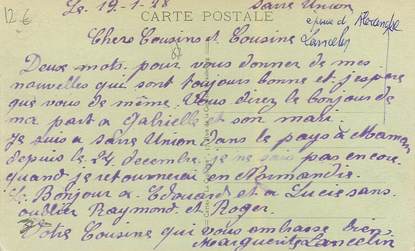 12€
Le 19-1-28 Sarre Union
CARTE POSTALE
épouse d'Alexandre
Lancelin
Chers Cousins et Cousine
Deux moti pour vous donner de mes
nouvelles qui sont toujours bonne et j'espère
que vous de même. Vous direz le bonjour de
ma part a Gabrielle et son mari.
Je suis a Sarre Union dans le pays a Maman
depuis le 24 decembre je ne sais pas encore
quand je retournerai en Normandie.
Bonjour a Edouard et a Lucie sans
oublier Raymond et Roger.
Votre Cousine qui vous embrasse bien
Marguerite Lancelin